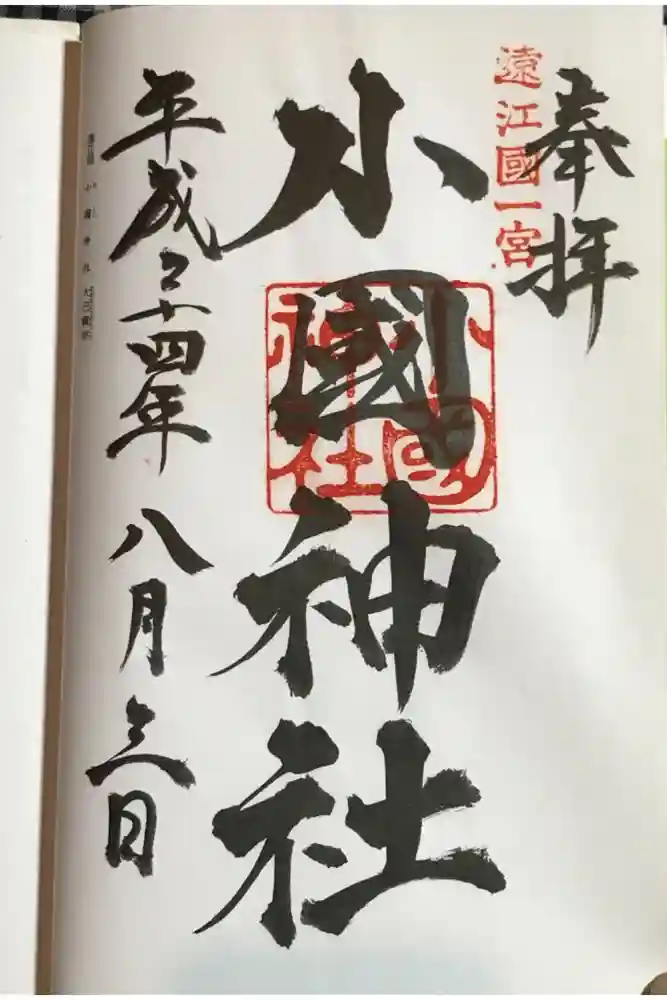 奉拝
遠江國一宮
小國神社
小國神社
平成二十四年 八月三日